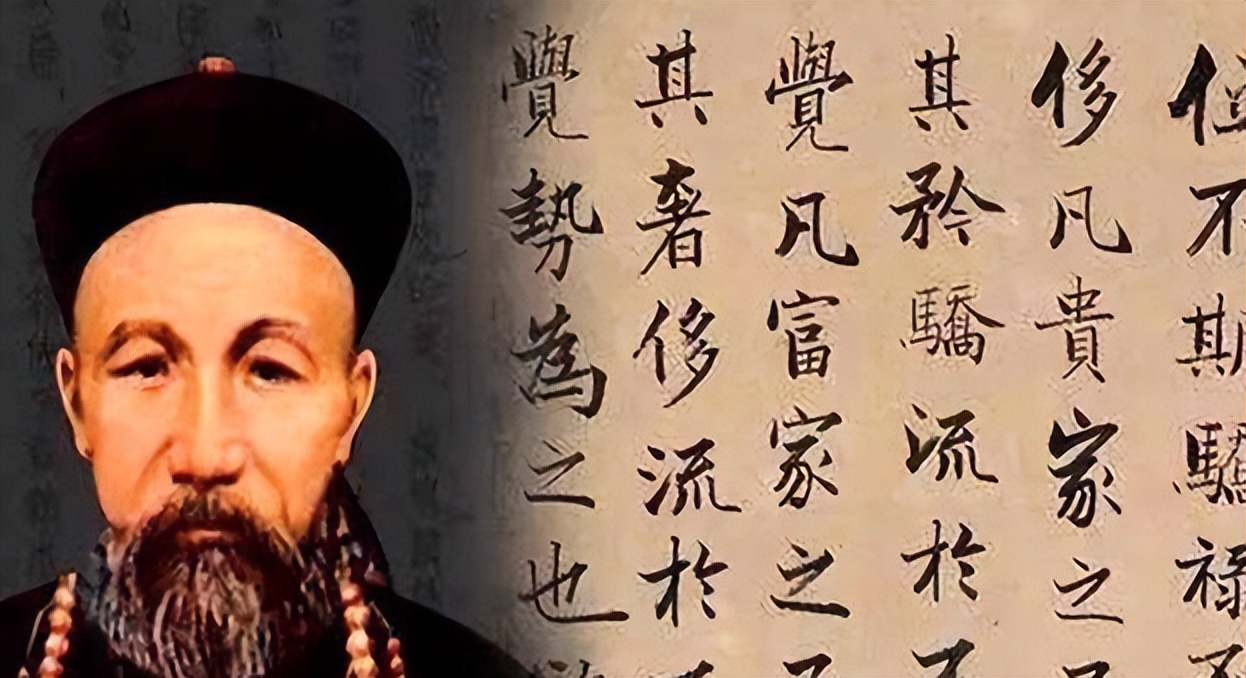 位不期驕祿不
侈凡貴家之子
其矜驕流於不
覺凡富家之子
其奢侈流於不
覺勢為之也